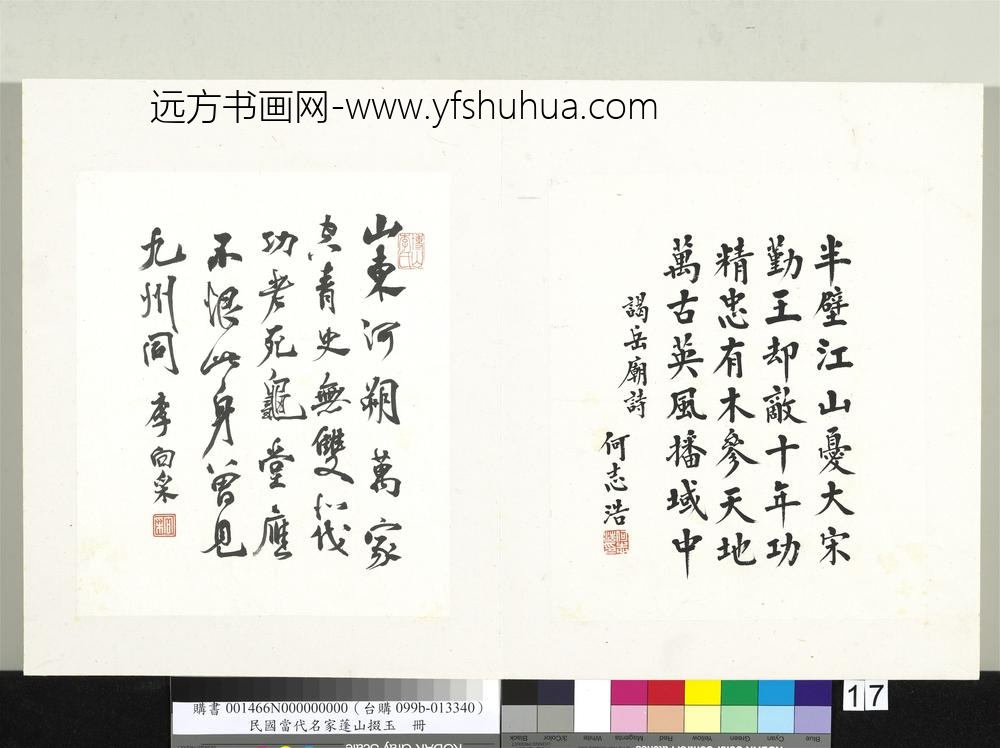 远方书画网-www.yfshuhua.com
半壁江山憂大宋
勤王却敵十年功
精忠有木參天地
萬古英風播域中
謁岳廟詩
何志浩
山東河朔萬家
空青史無雙北伐
功老死龜堂應
不恨此身曾見
九州同 李向采
購書 001466N000000000（台購 099b-013340）
民國當代名家蓬山掇玉 冊
Black 3/Color White Magenta Red Yellow Green Cyan Blue
17